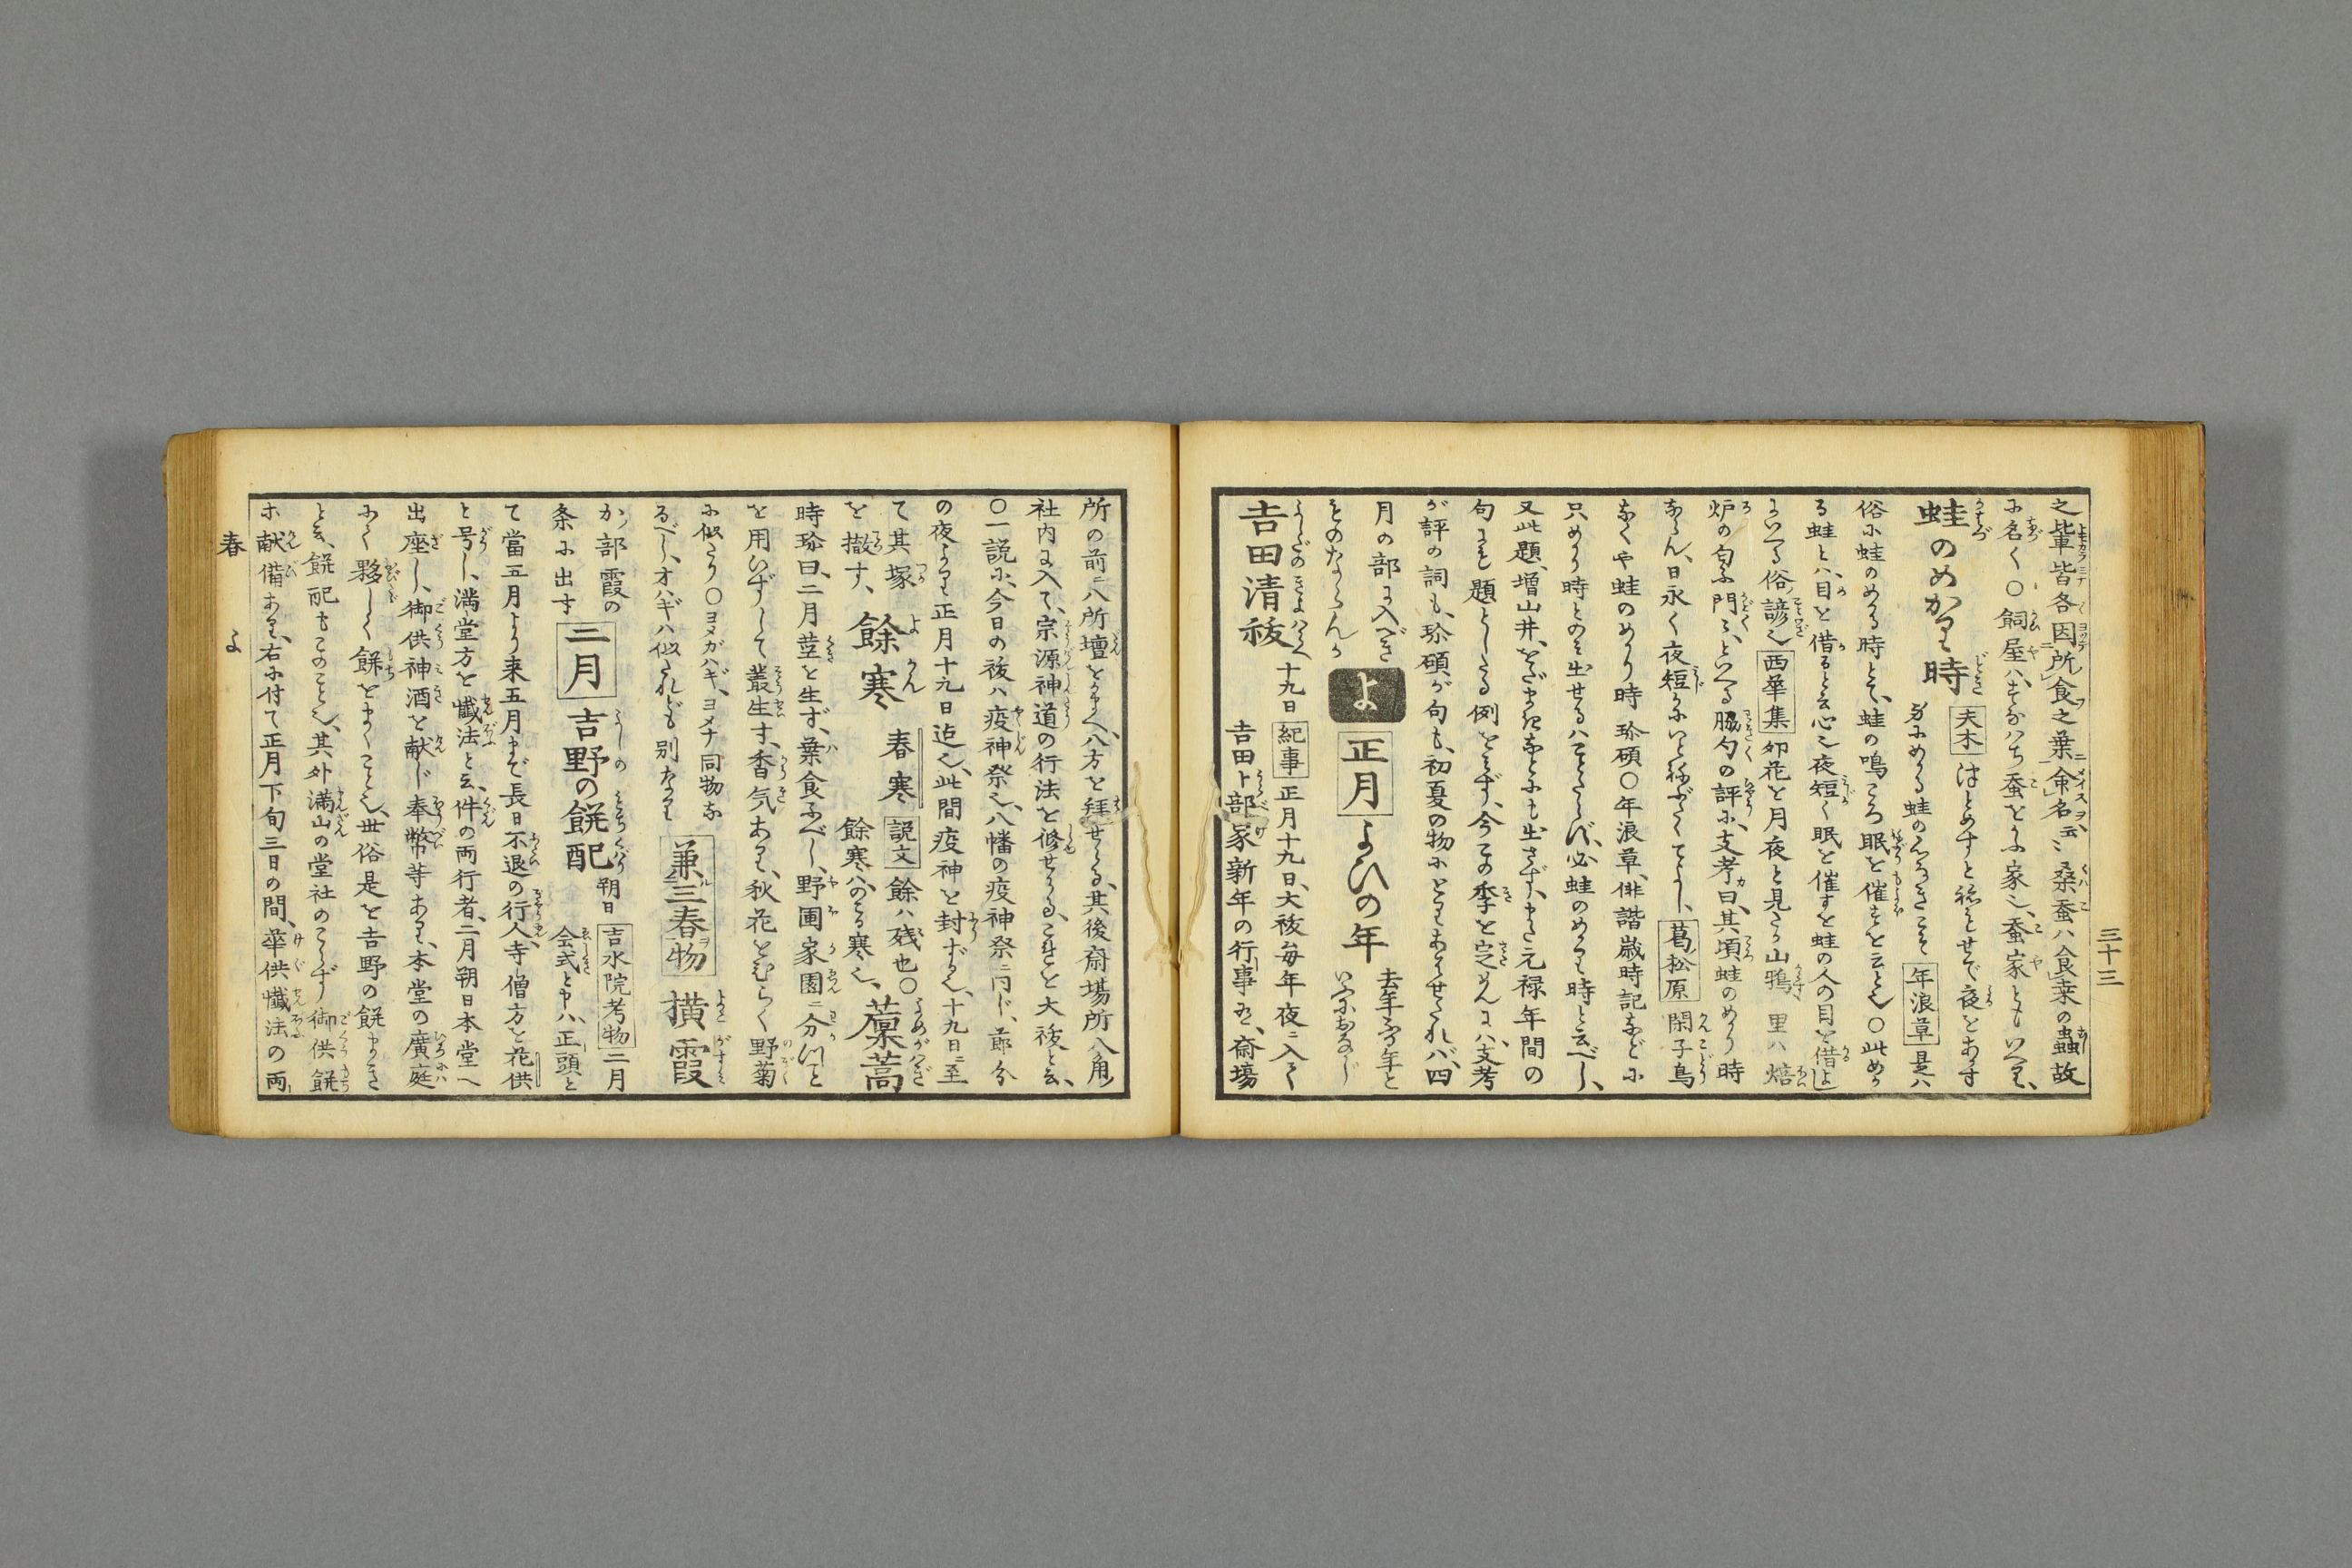 三十三
之輩皆各因所食之葉命名云〻桑蚕ハ食桒の蟲故
に名く〇飼屋ハ、すなハち蚕をかふ家也、蚕家ともいへり、
蛙のめかり時 夫木 はとめすと
せで夜をあす
蛙のこゝろなきこそ 年浪草 是ハ
俗に蛙のめかる時とて、蛙の鳴ころ眠を催すを云とも〇此めか
る蛙とハ、目を借ると云心也夜短く眠を催すを蛙の人の目を借よ
しにいへる俗諺也 西華集 卯花を月夜と見るか山鴉 里ハ焙
炉の匂ふ門〻、といへる脇句の評に、支考曰、其頃蛙のめかり時
ならん、日永く夜短かにいとねぶたくてよし、 葛松原 閑子鳥
なくや蛙のめかり時 珍碩〇年浪草、俳諧歳時記などに
只めかり時とのミ出せるハことたらず、必蛙のめかり時と云べし、
又此題、増山井、をだまきなどにも出さず、また元禄年間の
句にも題としたる例をミず、今この季を定めんに、ハ支考
が評の詞も、珍碩が句も、初夏の物にとりあハせたれバ、四
月の部に入べき
ものならんか
よ
正月 よひの年 去年今年と
いふにおなじ
吉田清祓 十九日 紀事 正月十九日、大祓毎年夜ニ入て
吉田卜部家新年の行事あり、斎場
所の前ニ八所壇をかまへ、八方を拜せらる、其後斎場所八角
社内に入て、宗源神道の行法を修せらる、これを大祓と云、
〇一説に、今日の祓ハ疫神祭也、八幡の疫神祭ニ同じ、節分
の夜より正月十九日迄也、此間疫神を封ずる也、十九日ニ至
て其塚
を撤す、 餘寒 春寒 説文 餘ハ残也〇
餘寒ハのこる寒也、 藁蒿
時珍曰、二月莖を生ず、葉食ふべし、野圃家園ニ分つと
を用いずして叢生す、香気あり、秋花をひらく野菊
に似たり〇ヨメガハギ、ヨメナ同物な
るべし、オハギハ似たれども別なり 兼三春物 横霞
か部霞の
条に出す 二月 吉野の餅配 朔日 吉水院考物 二月
会式と申ハ、正頭と
て當五月より来五月まで長日不退の行人寺僧方を花供
と号し、満堂方を懺法と云、件の両行者、二月朔日本堂へ
出座し、御供神酒を献じ奉幣等あり、本堂の廣庭
にて夥しく餅をまくこと也、世俗是を吉野の餅まき
と云、餅配もこのこと也、其外満山の堂社のこらず御供餅
ホ献備あり、右に付て正月下旬三日の間、華供懺法の両
春 よ